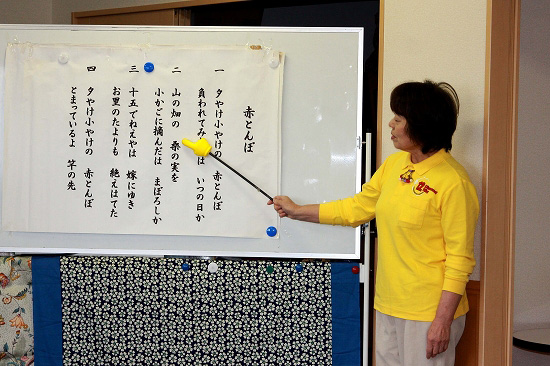 赤とんぼ
一 夕やけ小やけの 赤とんぼ
負われてみ は いつの日か
二 山の畑の 桑の実を
小かごに摘んだは まぼろしか
三 十五でねえやは 嫁にゆき
お里のたよりも 絶えはてた
四 夕やけ小やけの 赤とんぼ
とまっているよ 竿の先